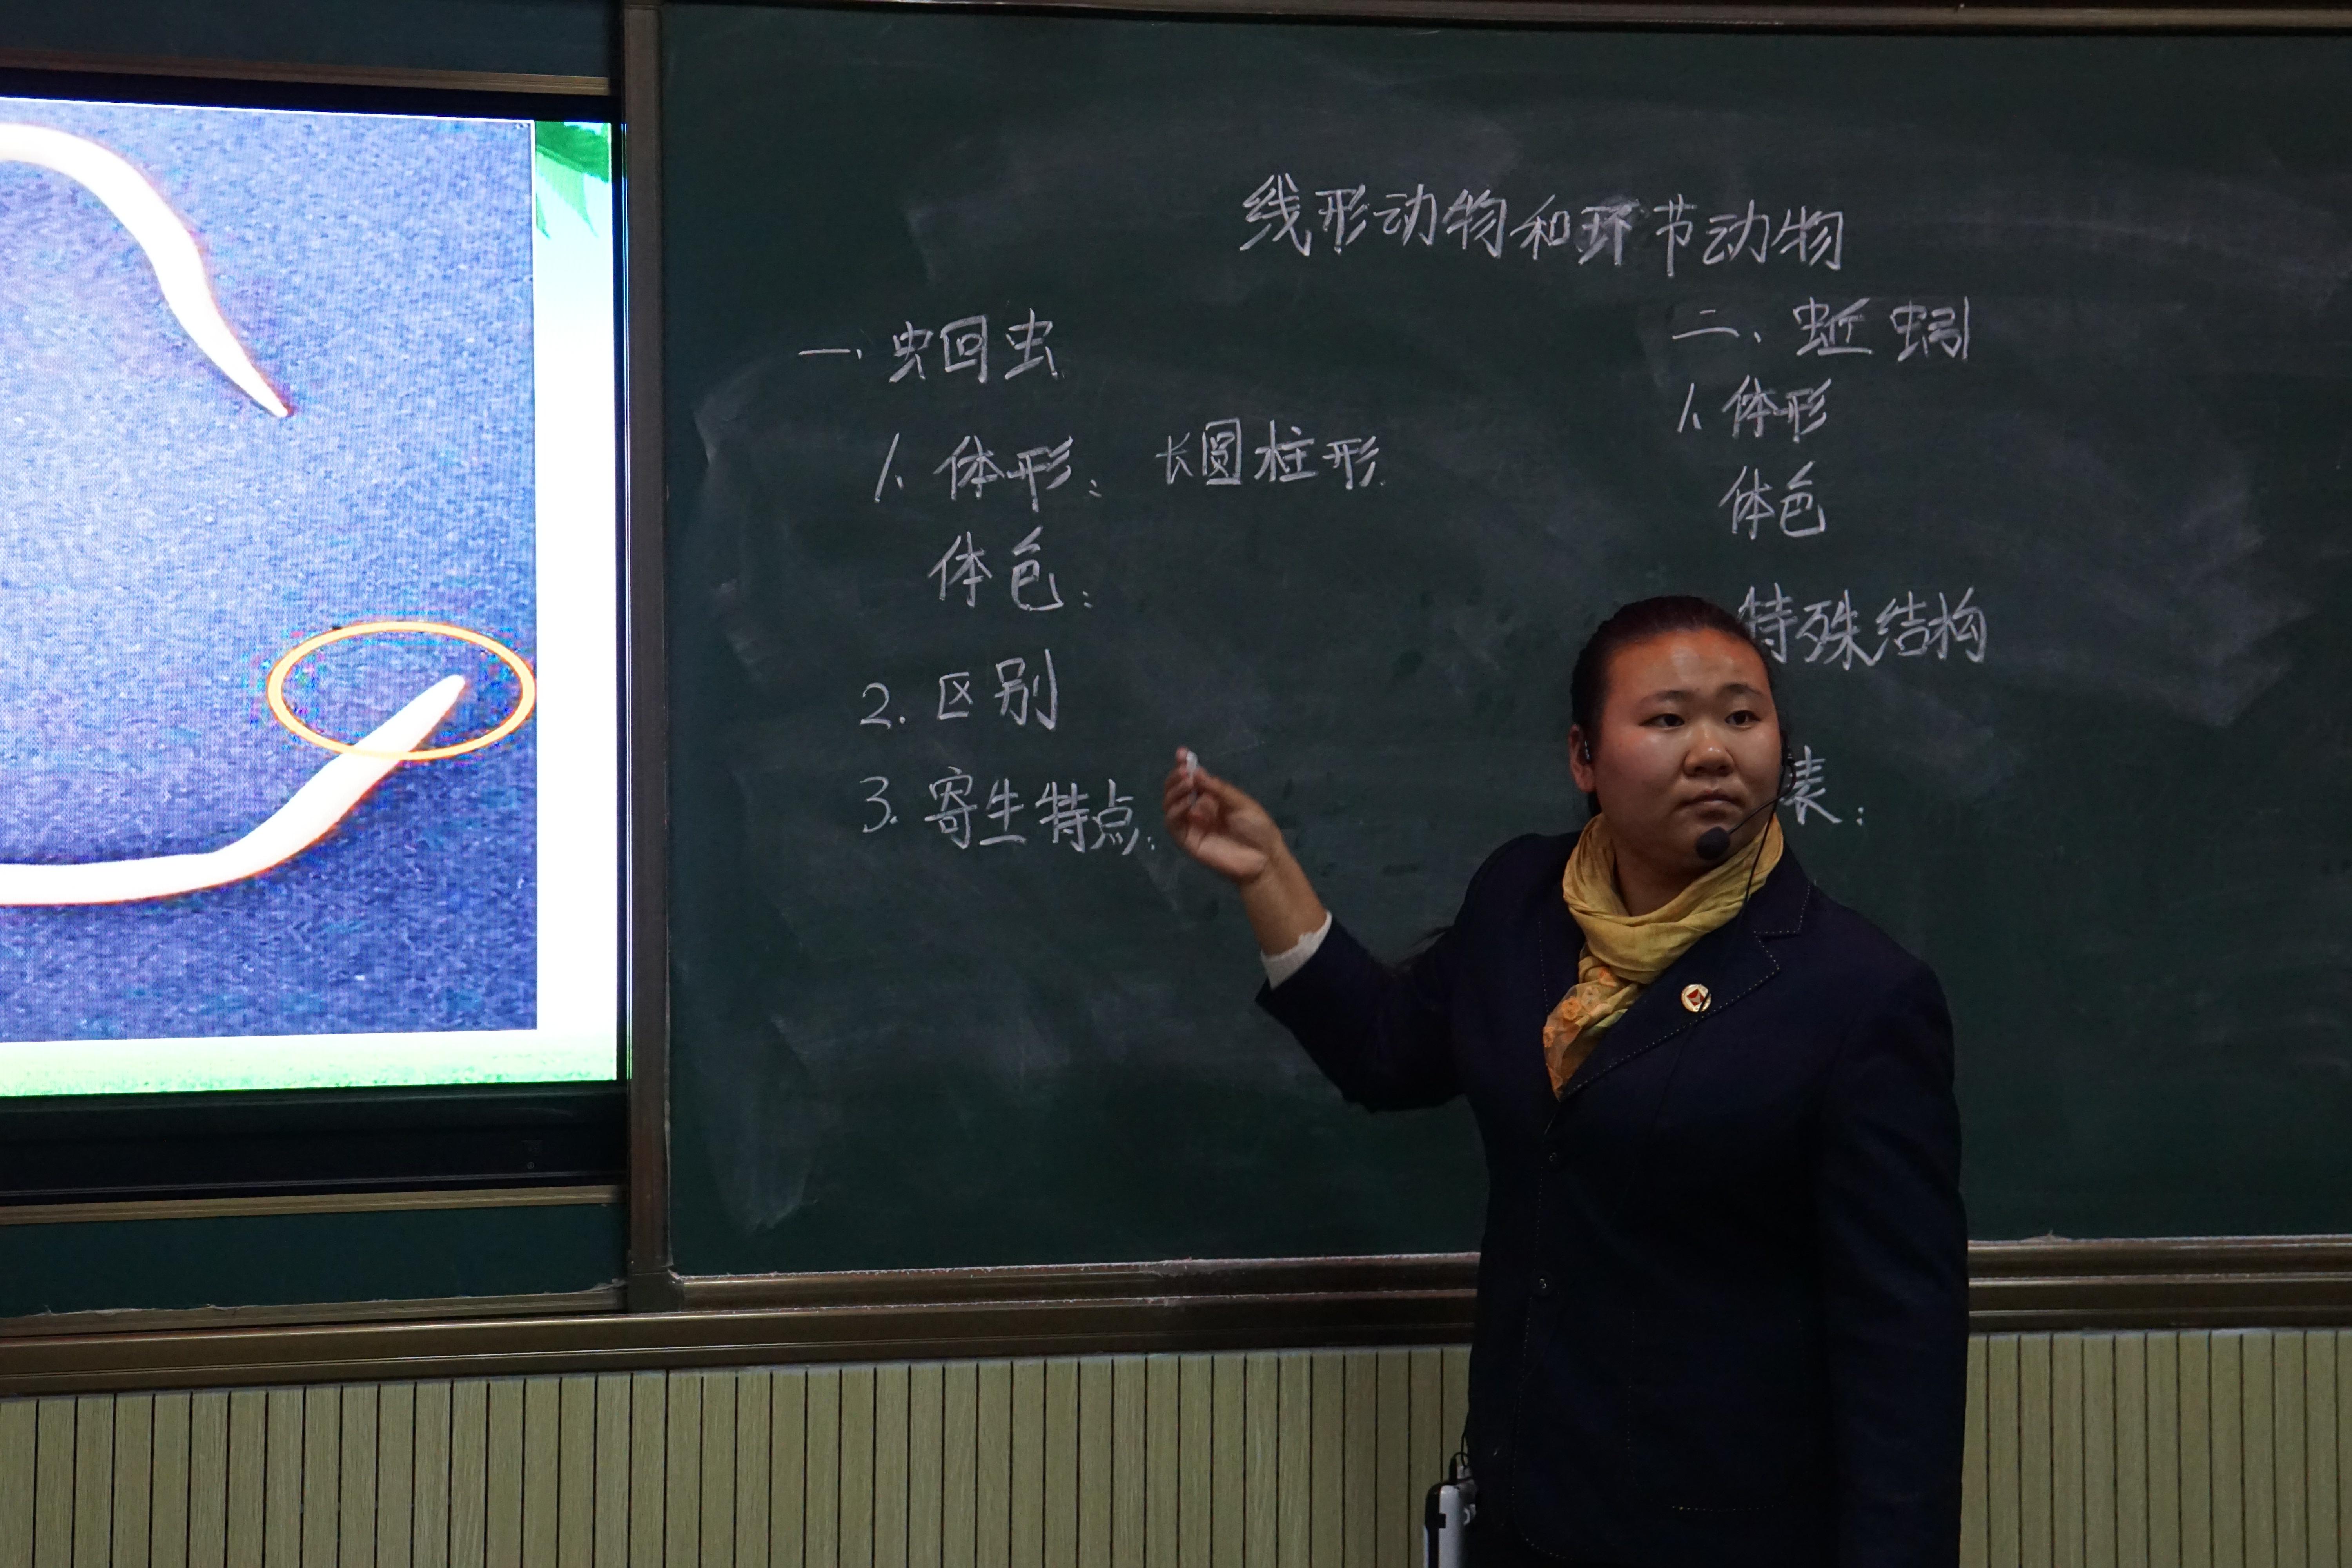 线形动物和环节动物
一、蛔虫
1、体形：长圆柱形
体色：
2.区别
3.寄生特点：
二、蚯蚓
1、体形
体色
特殊结构
表：